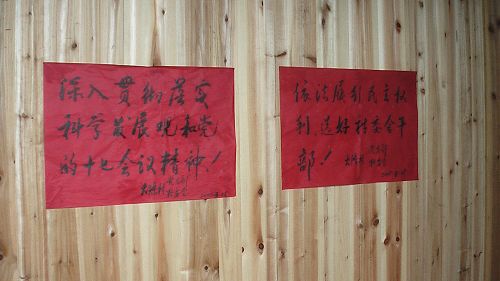 深入贯彻落实
科学发展观和党
的十七会议精神！
依法展彰民主权
利、选好村委会干
部！